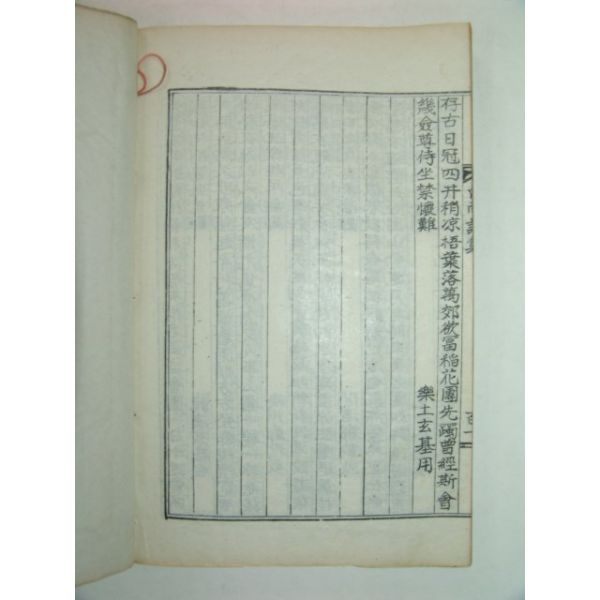 存古日冠四井稍凉梧葉落萬郊欲富稲花團先躅曽經斯會
幾僉尊侍坐禁懷難
樂土玄基用